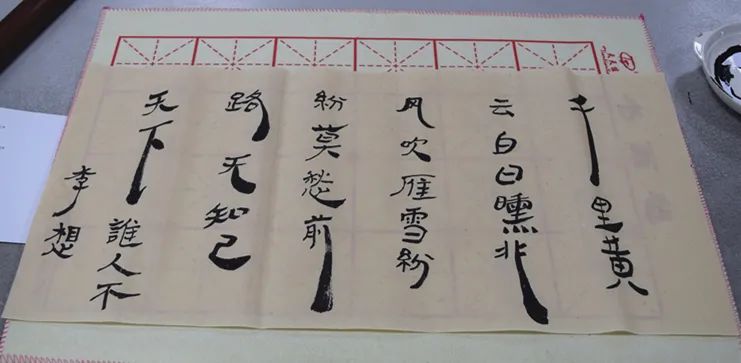 千里黄
云白日曛非
风吹雁雪紛
紛莫愁前
路无知己
天下誰人不
李想